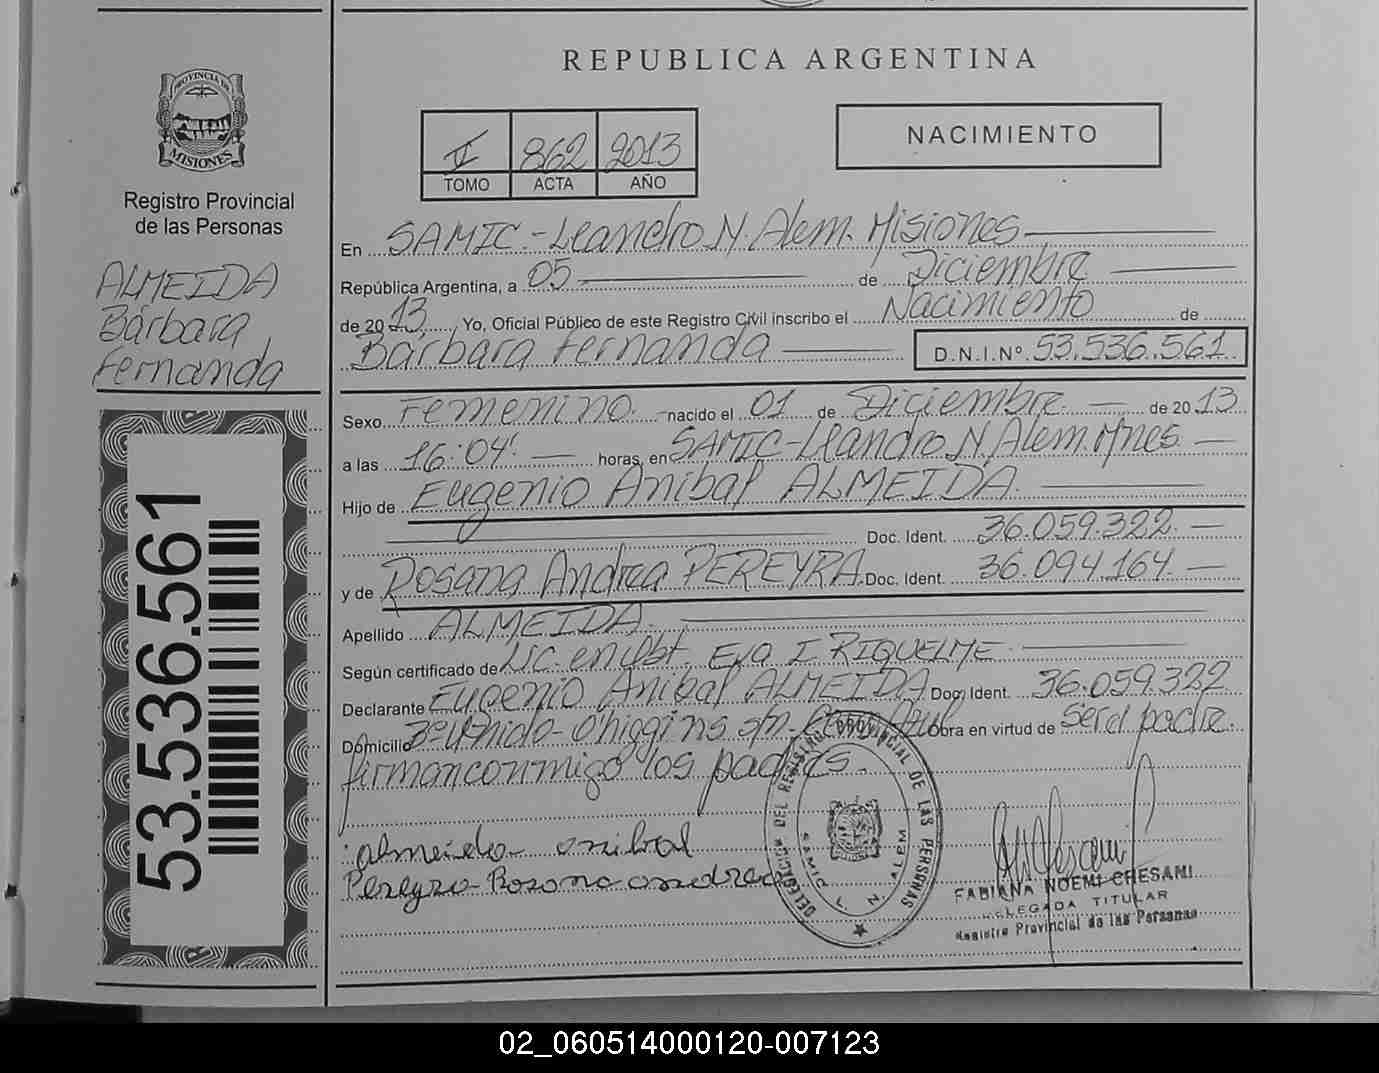 REPUBLICA ARGENTINA
PROVINCIA DE
MISIONES
Registro Provincial
de las Personas
ALMEIDA
Bárbara
Fernanda
53.536.561
II 862 2013
TOMO ACTA AÑO
NACIMIENTO
En SAMIC.-Leandro N. Alem. Misiones
República Argentina, a 05 de Diciembre
de 2013, Yo, Oficial Público de este Registro Civil inscribo el Nacimiento de
Bárbara Fernanda D.N.I.Nº 53.536.561
Sexo Femenino. nacido el 01 de Diciembre. de 2013
a las 16:04' horas, en SAMIC-Leandro N. Alem. Mnes
Hijo de Eugenio Aníbal ALMEIDA
Doc. Ident. 36.059.322.
y de Rosana Andrea PEREYRA Doc. Ident. 36.094.164
Apellido ALMEIDA.
Según certificado de Lic. en Obst. Eva I RIQUELME
Declarante Eugenio Aníbal ALMEIDA Doc. Ident. 36.059.322
Domicilio Bº Unido-O'higgins s/n Obra en virtud de ser el padre.
firman conmigo los padres.
almeida anibal
Pereyra Rosana andrea
DELEGACION DEL REGISTRO PROVINCIAL DE LAS PERSONAS
SAMIC L. N. ALEM
FABIANA NOEMI CRESANI
DELEGADA TITULAR
Registro Provincial de las Personas
02_060514000120-007123